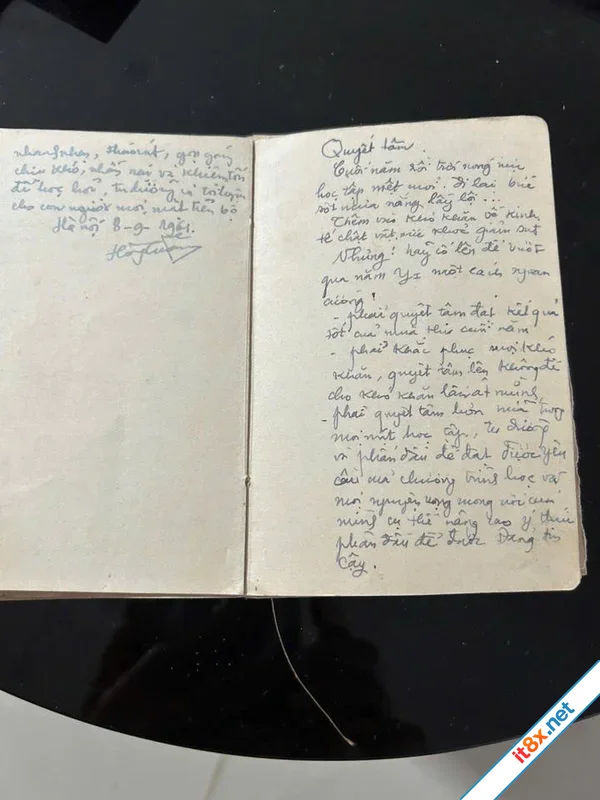 nhanh nhẹn, tháo vát, gọn gàng
chịu khó, nhẫn nại và khiêm tốn
để học hỏi, tu dưỡng và rèn luyện
cho con người mọi mặt tiến bộ
Hà nội 8-9-1961.
Quyết tâm.
Cuối năm rồi trời nóng nực
học tập mệt mỏi. Đi lại
sốt nắng, lầy lội...
Thêm vào khó khăn về kinh
tế chật vật, sức khoẻ giảm sút
Nhưng! hãy cố lên để vượt
qua năm một cách ngoan
cường!
- phải quyết tâm đạt kết quả
tốt của mùa thi cuối năm
- phải khắc phục mọi khó
khăn, quyết tâm lên không để
cho khó khăn lấn át mình,
- phải quyết tâm hơn nữa trong
mọi mặt học tập, tu dưỡng
và phấn đấu để đạt được yêu
cầu mà chương trình học và
mọi nguyện vọng mong mỏi của
mình cụ thể nâng cao ý thức
phấn đấu để được Đảng tin
cậy.
it8x.net